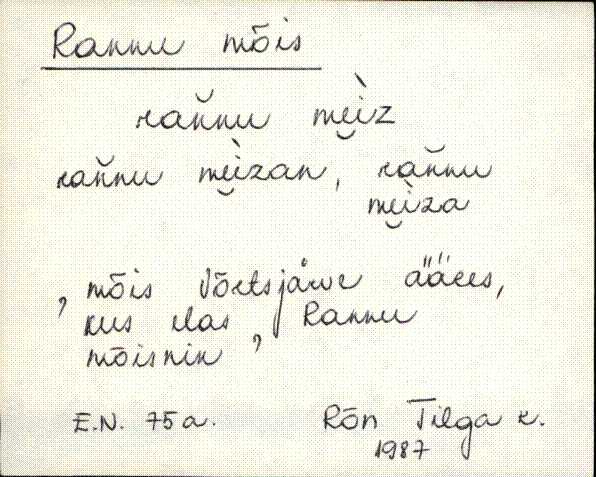 Rannu mõis
rañ̆nu mẹìz
rañ̆nu mẹìzan, rañ̆nu
mẹìza
, mõis Võrtsjärve ääres,
kus elas, Rannu
mõisnik
E.N. 75a. Rõn Tilga k.
1987